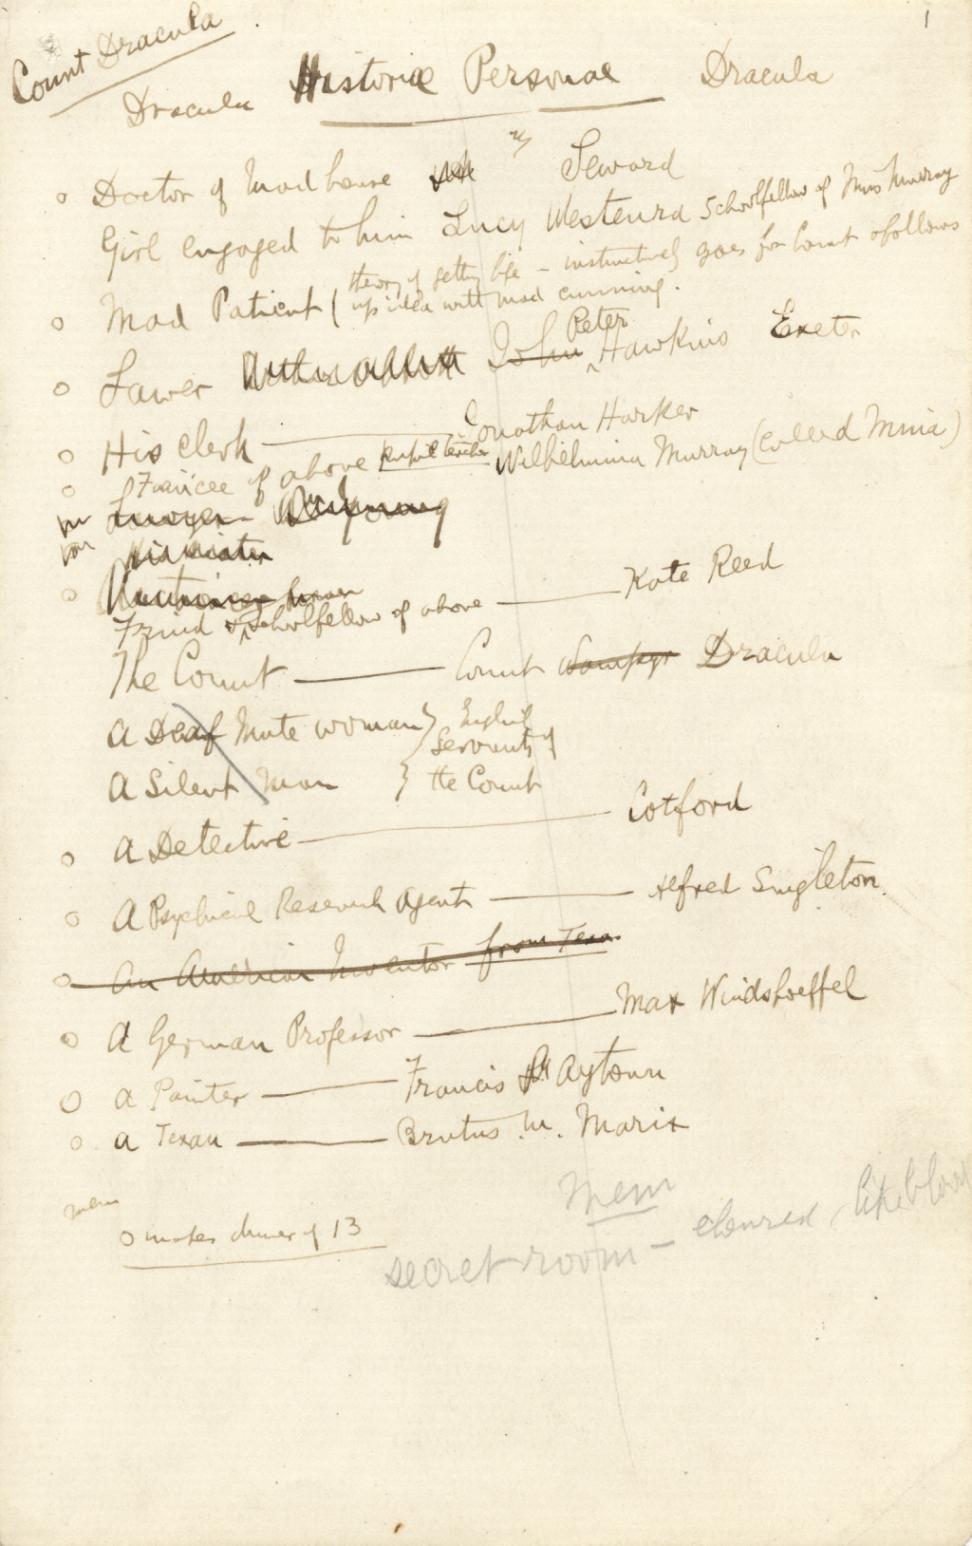 1
Count Dracula
Dracula Historiae Personae Dracula
Doctor of Mad house Seward
Girl engaged to him Lucy Westenra Schoolfellow of Miss Murray
Mad Patient ( theory of getting life - instinctively goes for Count & follows
up idea with mad cunning.
Lawer John Peter Hawkins Exeter
His Clerk — Jonathan Harker
Fiancée of above Pupil teacher Wilhelmina Murray (called Mina)
Lawyer
Friend & Schoolfellow of above — Kate Reed
The Count — Count Wampyr Dracula
A Deaf Mute woman } English
Servants of
A Silent Man } the Count
A Detective — Cotford
A Psychical Research Agent — Alfred Singleton.
An American Inventor from Texas
A German Professor — Max Windshoeffel
A Painter — Francis Aytown
A Texan — Brutus M. Marix
mem
Mem
secret room - coloured like blood
o makes dinner of 13